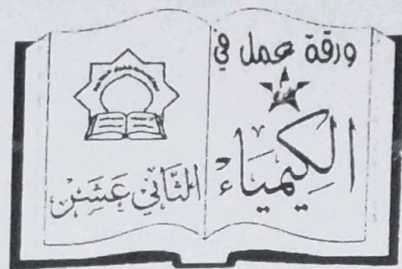 ورقة عمل في
الكِيمْيَاء
الثَّانِي عَشَر